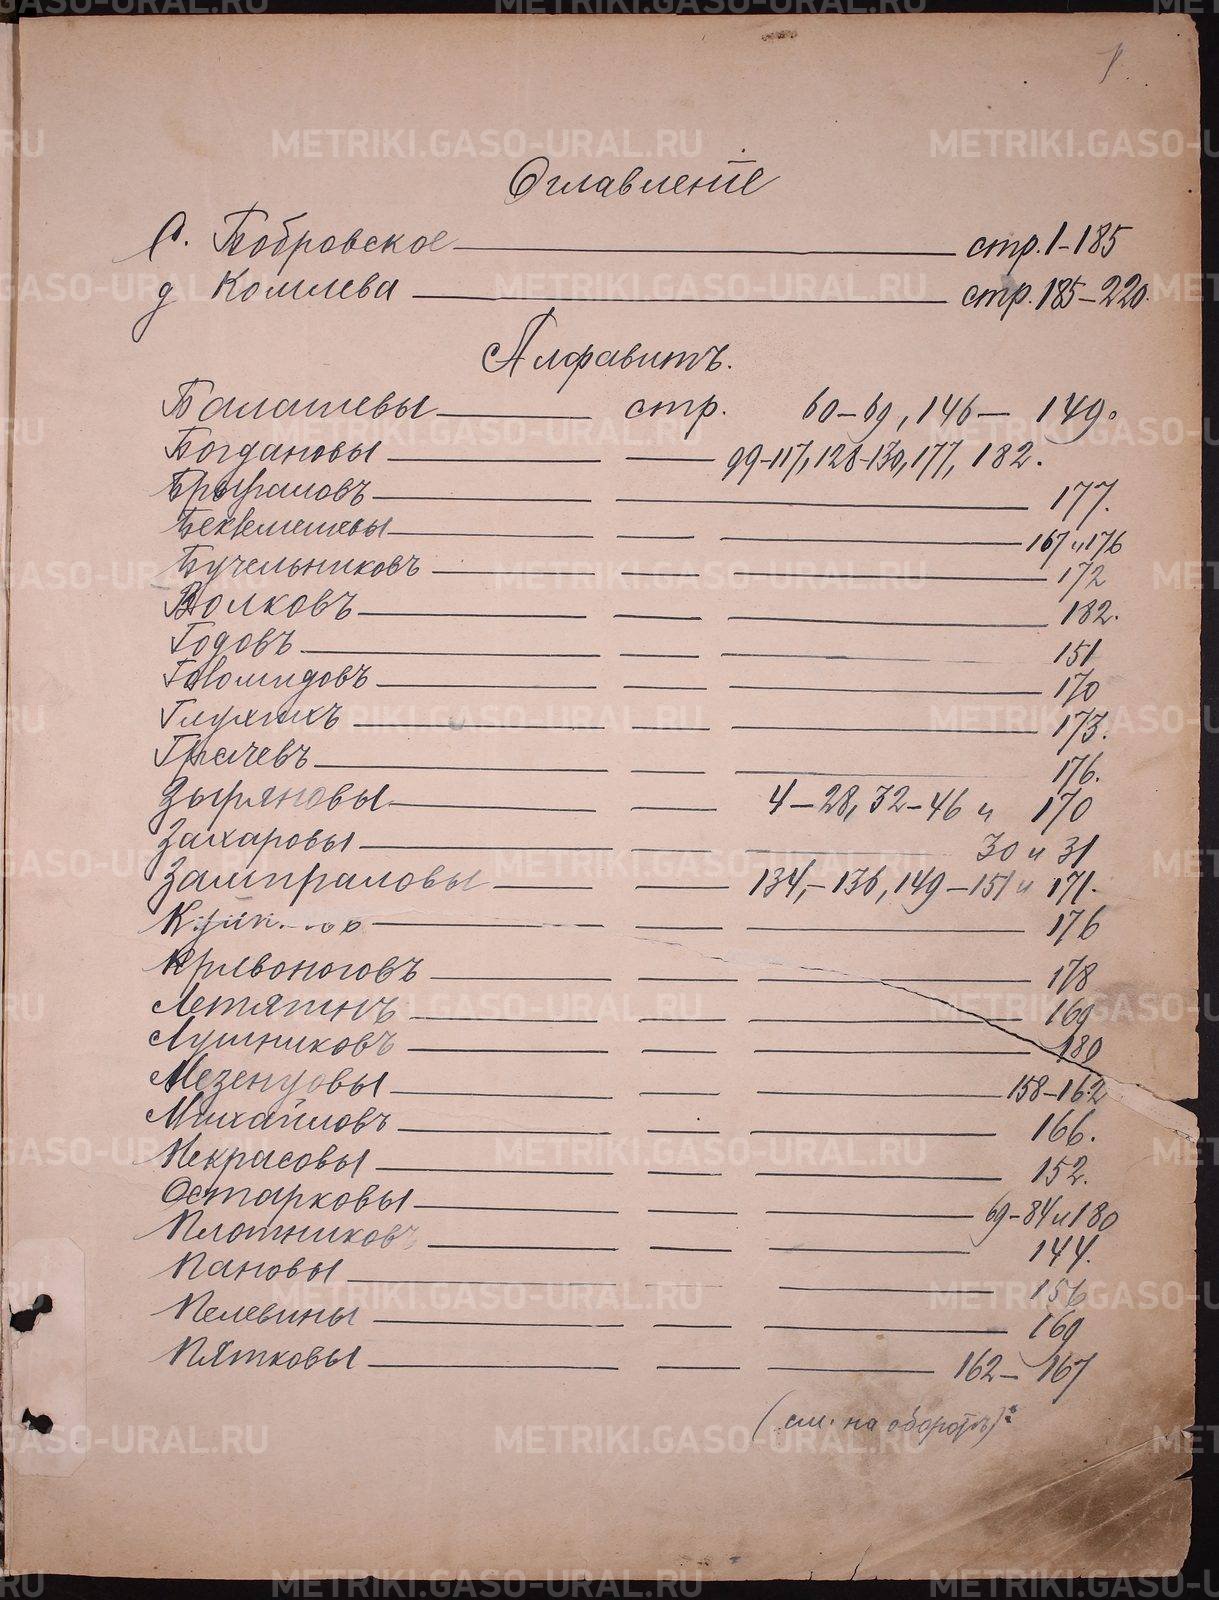 Оглавленіе
С. Бобровское стр. 1-185
д Комлева стр. 185-220.
Алфавитъ.
Балашевы стр. 60-69, 146- 149.
Богдановы 99-117, 128-130, 177, 182.
177.
Бекленищевы 167 и 176
Бучельниковъ 172
Волковъ 182.
Годовъ 151
170
Глухихъ 173.
Грачевъ 176.
Зыряновы 4-28, 32-46 и 170
Захаровы 30 и 31
134,-136, 149-151 и 171.
176
Кривоноговъ 178
Летягинъ 169
Лушниковъ 180
Мезенцовы 158-162
Михайловъ 166.
Некрасовы 152.
Остарковы 69-84 и 180
Плотниковъ 144.
Пановы 156
Пелевины 169
Пятковы 162- 167
(см. на оборотѣ)
METRIKI.GASO-URAL.RU